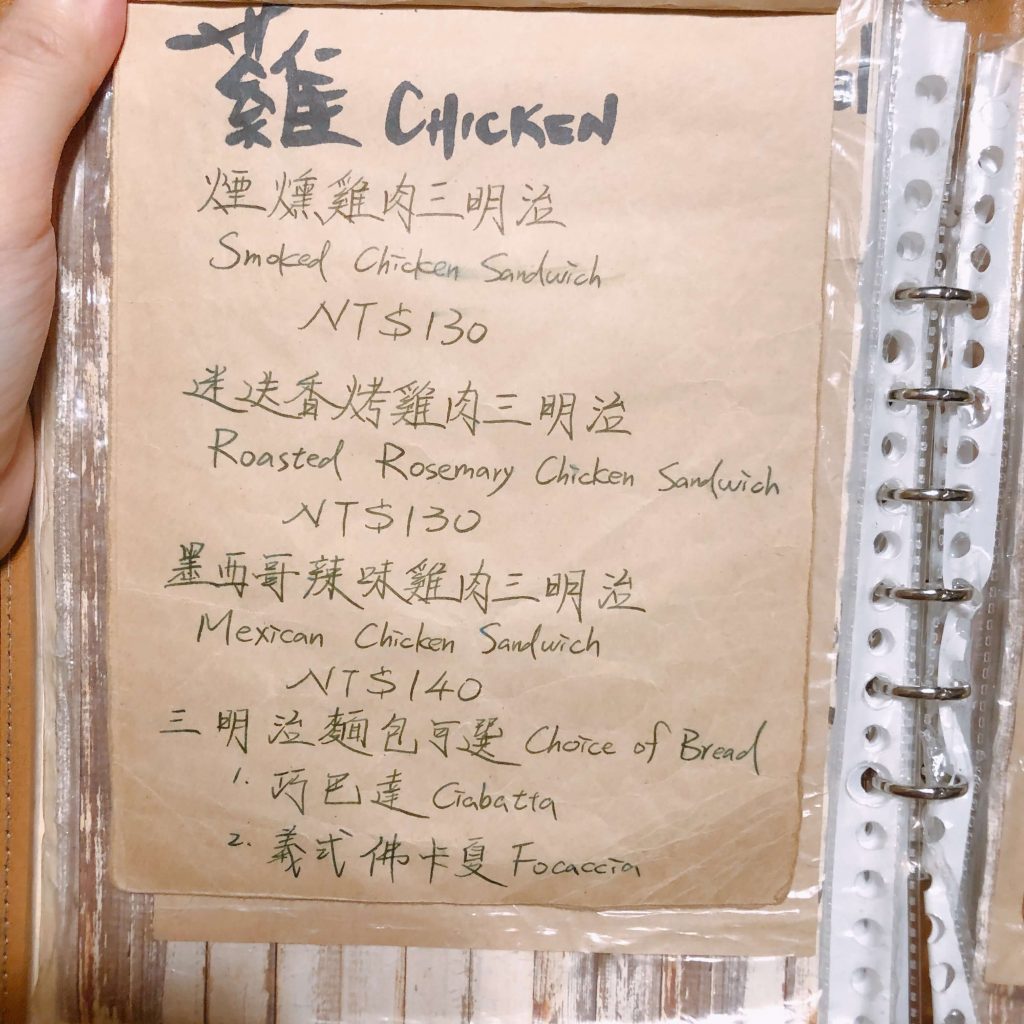 雞 CHICKEN
煙燻雞肉三明治
Smoked Chicken Sandwich
NT$130
迷迭香烤雞肉三明治
Roasted Rosemary Chicken Sandwich
NT$130
墨西哥辣味雞肉三明治
Mexican Chicken Sandwich
NT$140
三明治麵包可選 Choice of Bread
1. 巧巴達 Ciabatta
2. 義式佛卡夏 Focaccia